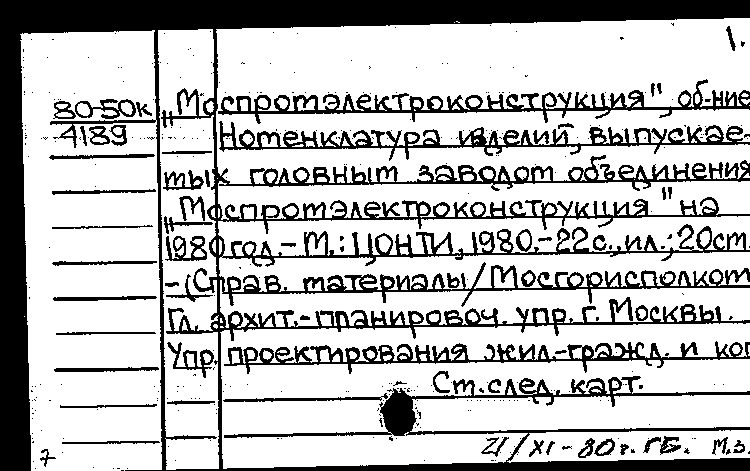 1.
80-50к
4189
„Моспромэлектроконструкция", об-ние
Номенклатура изделий, выпускае-
мых головным заводом объединения
„Моспромэлектроконструкция" на
1980 год. - М.: ЦОНТИ, 1980. - 22 с., ил.; 20 см.
- (Справ. материалы / Мосгорисполком
Гл. архит.-планировоч. упр. г. Москвы.
Упр. проектирования жил.-гражд. и ком
Ст. след. карт.
21/XI - 80 г. ГБ. М.З.
7